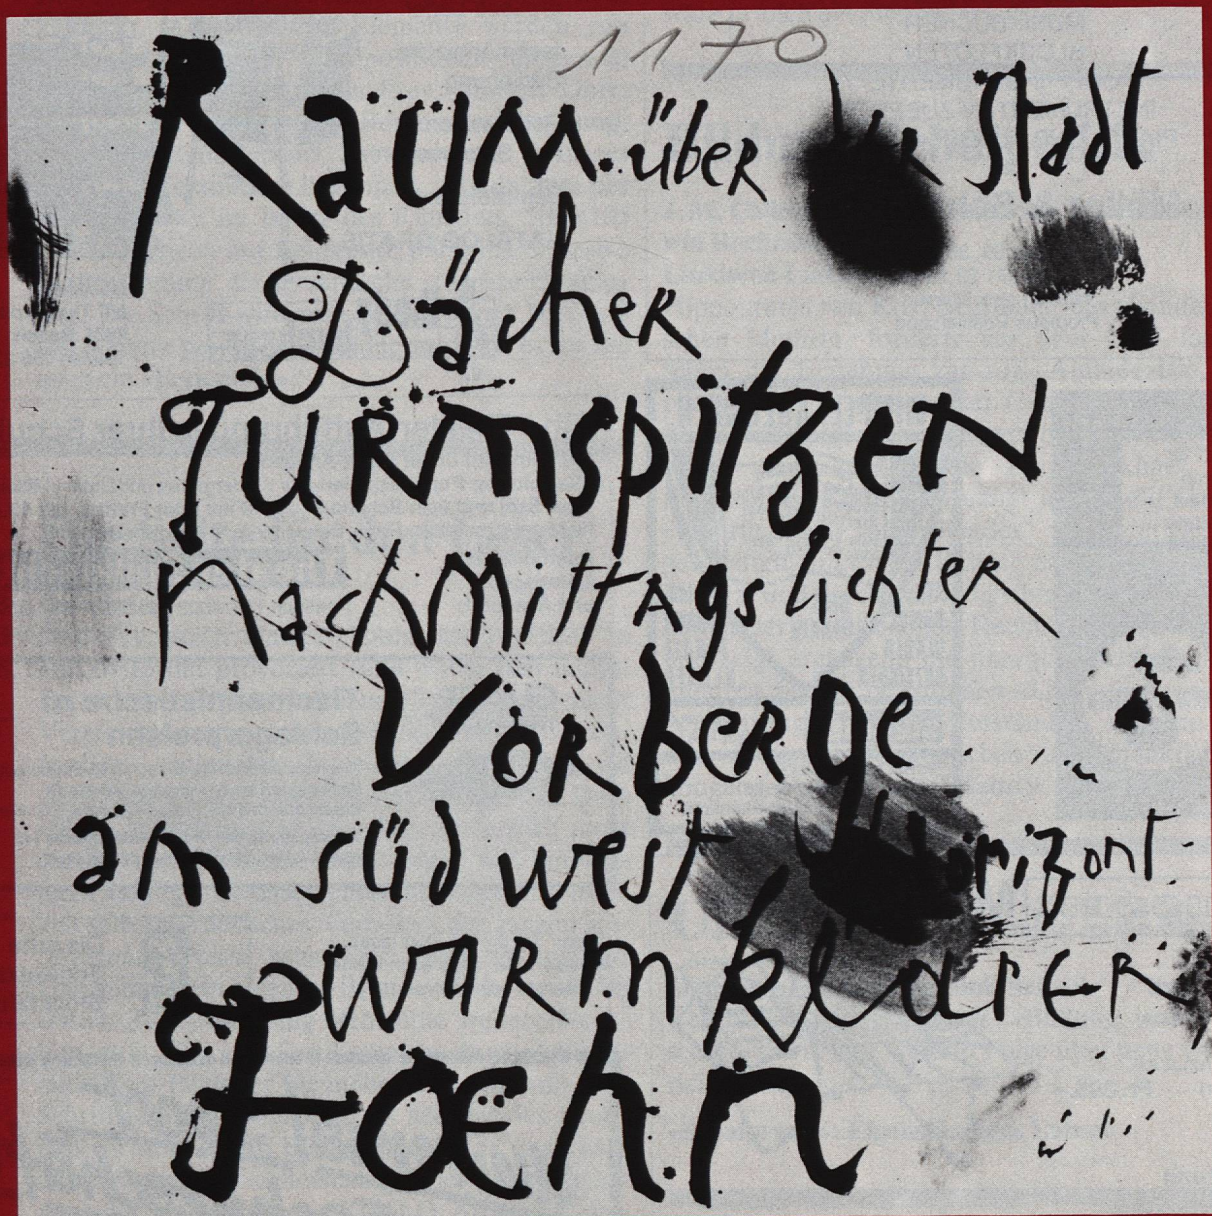 1170
Raum über der Stadt
Dächer
Turmspitzen
Nachmittagslichter
Vorberge
am südwest Horizont
warmklarer
Foehn